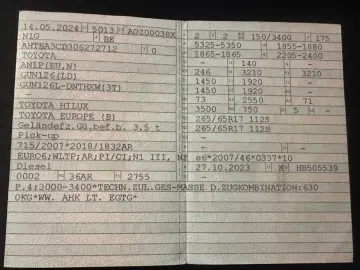 14.05.2024 5013 A0Z00038X
N1G BE
AHTBA3CD306272712 0
TOYOTA
AN1P(EU,N)
GUN126(LD)
GUN126L-DNTHXW(3T)
-
TOYOTA HILUX
TOYOTA EUROPE (B)
Geländefz.Gü.bef.b. 3,5 t
Pick-up
715/2007*2018/1832AR
EURO6;WLTP;AR;PI/CI;N1 III, N2
Diesel
0002 36AR 2755
2 2 150/3400 175
5325-5350 1855-1880
1865-1865 2205-2400
- 140 -
246 3210 3210
1450 1920 -
1450 1920 -
73 2550 71
3500 750 5 -
265/65R17 112S
265/65R17 112S
-
-
e6*2007/46*0337*10
27.10.2023 K HB505539
-
P.4:3000-3400*TECHN.ZUL.GES-MASSE D.ZUGKOMBINATION:630
0KG*WW. AHK LT. EGTG*